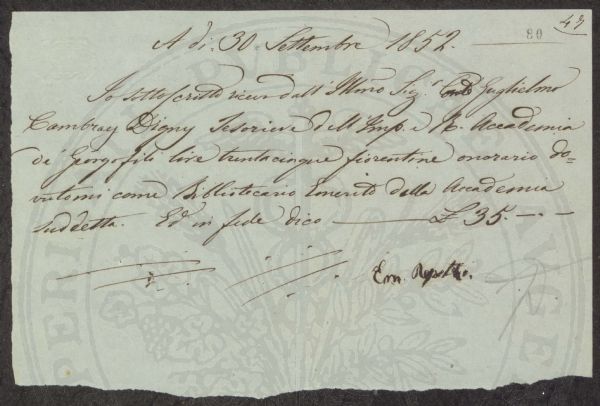 47
80
A dì 30 Settembre 1852.
Io sottoscritto ricevo dall' Illmo Sig.r Guglielmo
Cambray Digny Tesoriere dell' Imp. e R. Accademia
de' Georgofili lire trentacinque fiorentine onorario do=
vutomi come Bibliotecario Emerito della Accademia
suddetta. Ed in fede dico £ 35.—.—